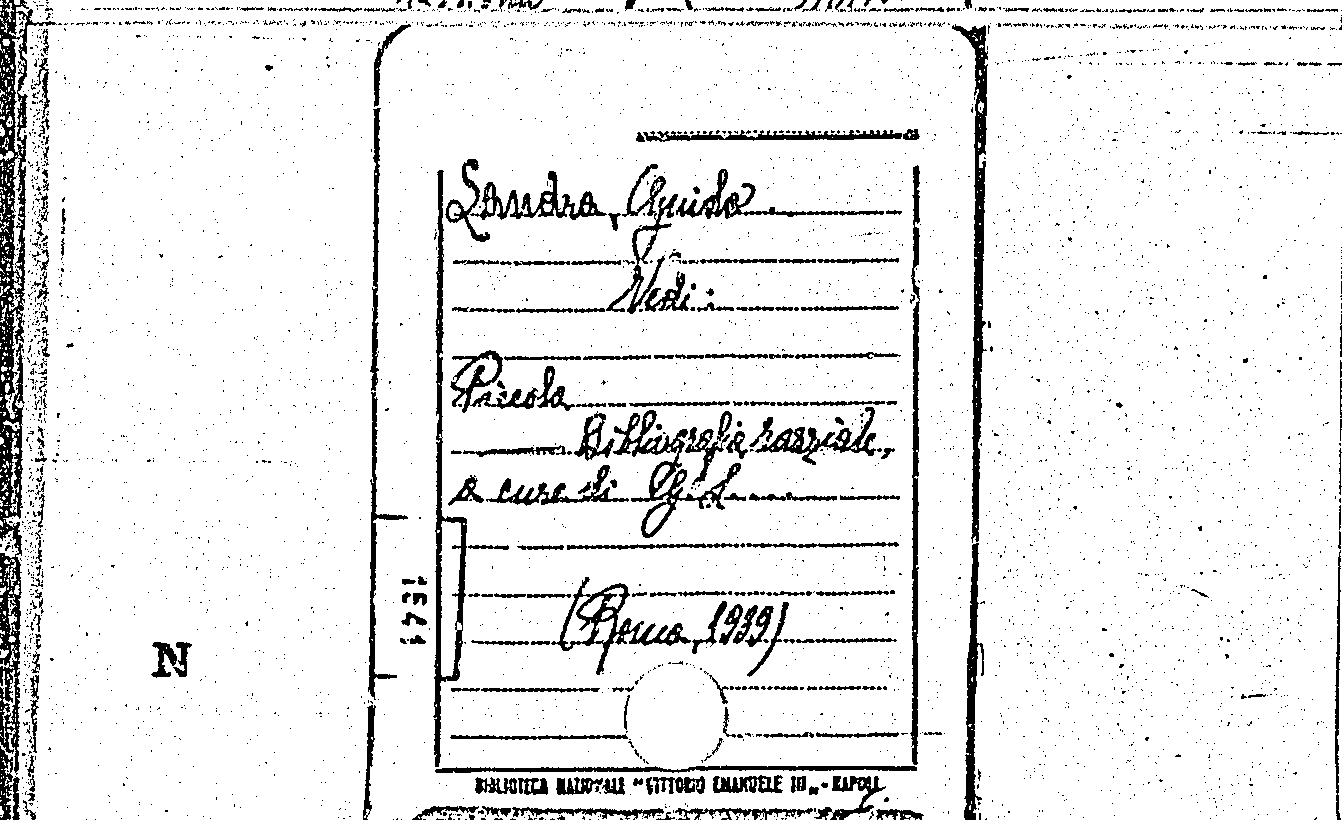 Landra, Guido.
Vedi:
Piccola
Bibliografia razziale,
a cura di G. L....
(Roma, 1939)
N
BIBLIOTECA NAZIONALE "VITTORIO EMANUELE III„ - NAPOLI